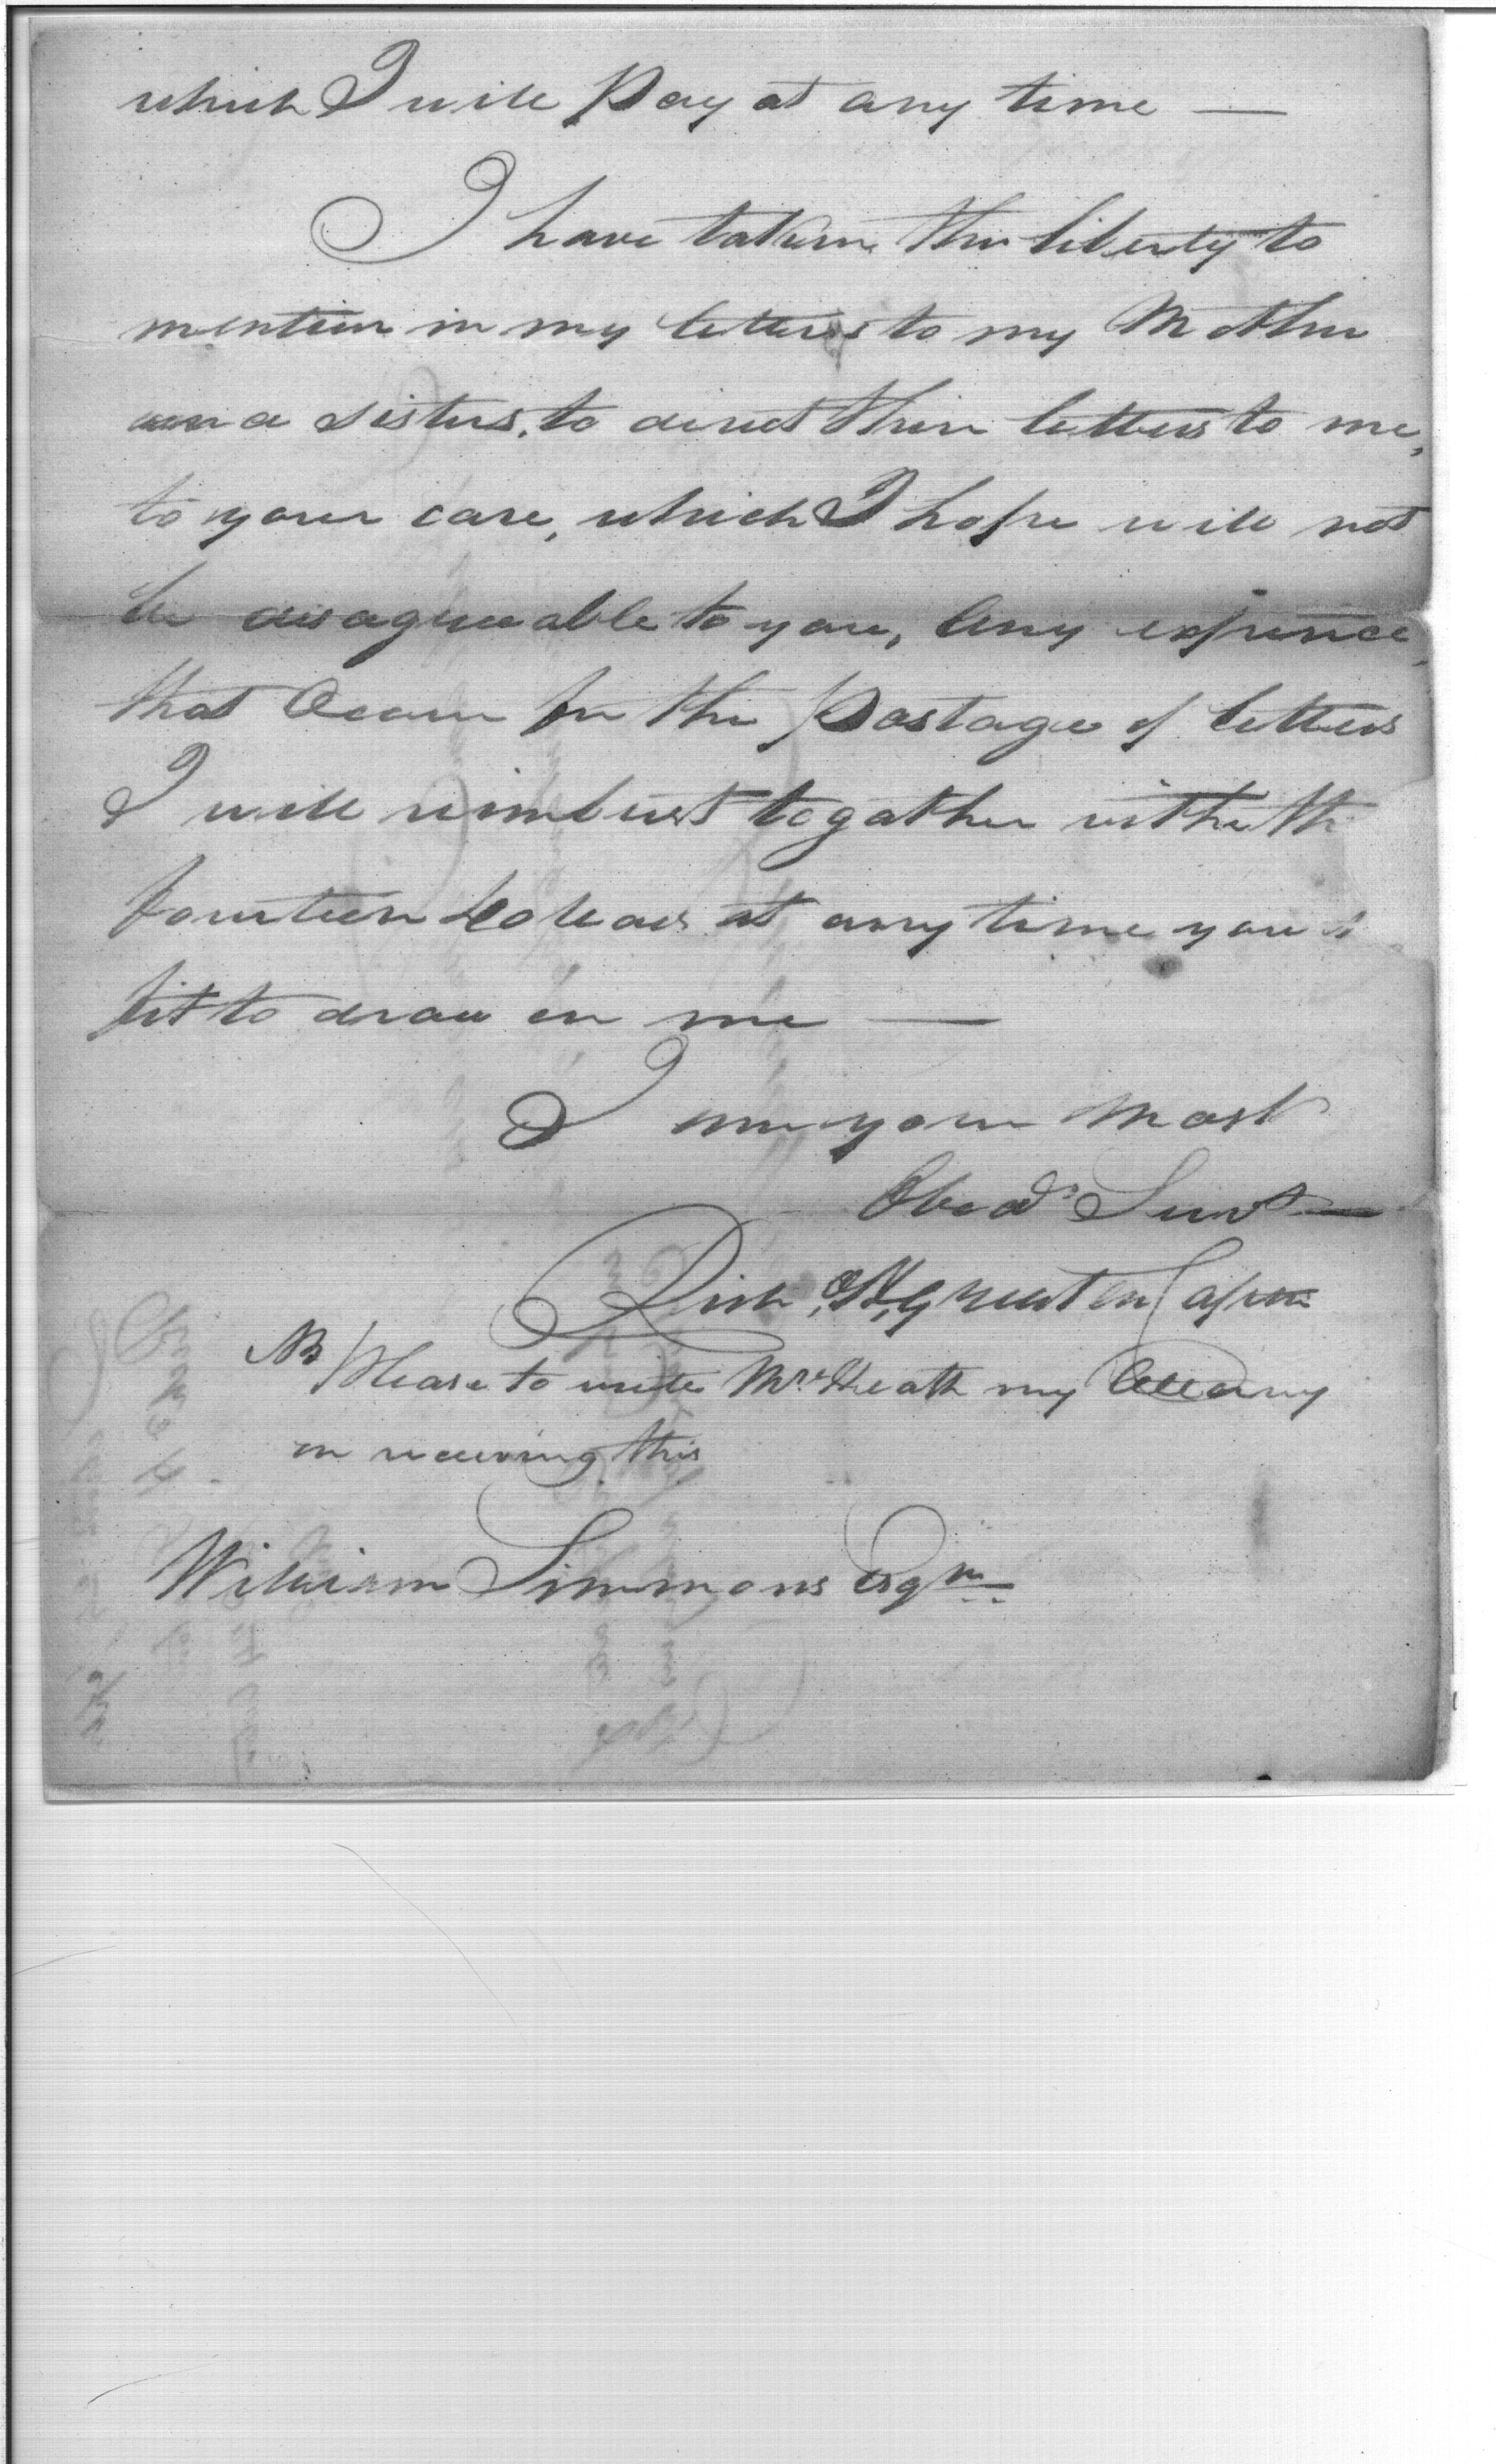 which I will Pay at any time —
I have taken the liberty to
mention in my letters to my Mother
and sisters, to direct their letters to me,
to your care, which I hope will not
be disagreeable to you, Any expence,
that Occur for the Postage of letters
I will reimburst togather with th
fourteen Dollars at any time you s
fit to draw on me —
I am your Most
Obed. Servt —
Rich. H. Greaton Capn
NB Please to write Mrs. Heath my
on receiving this
William Simmons Esqr.